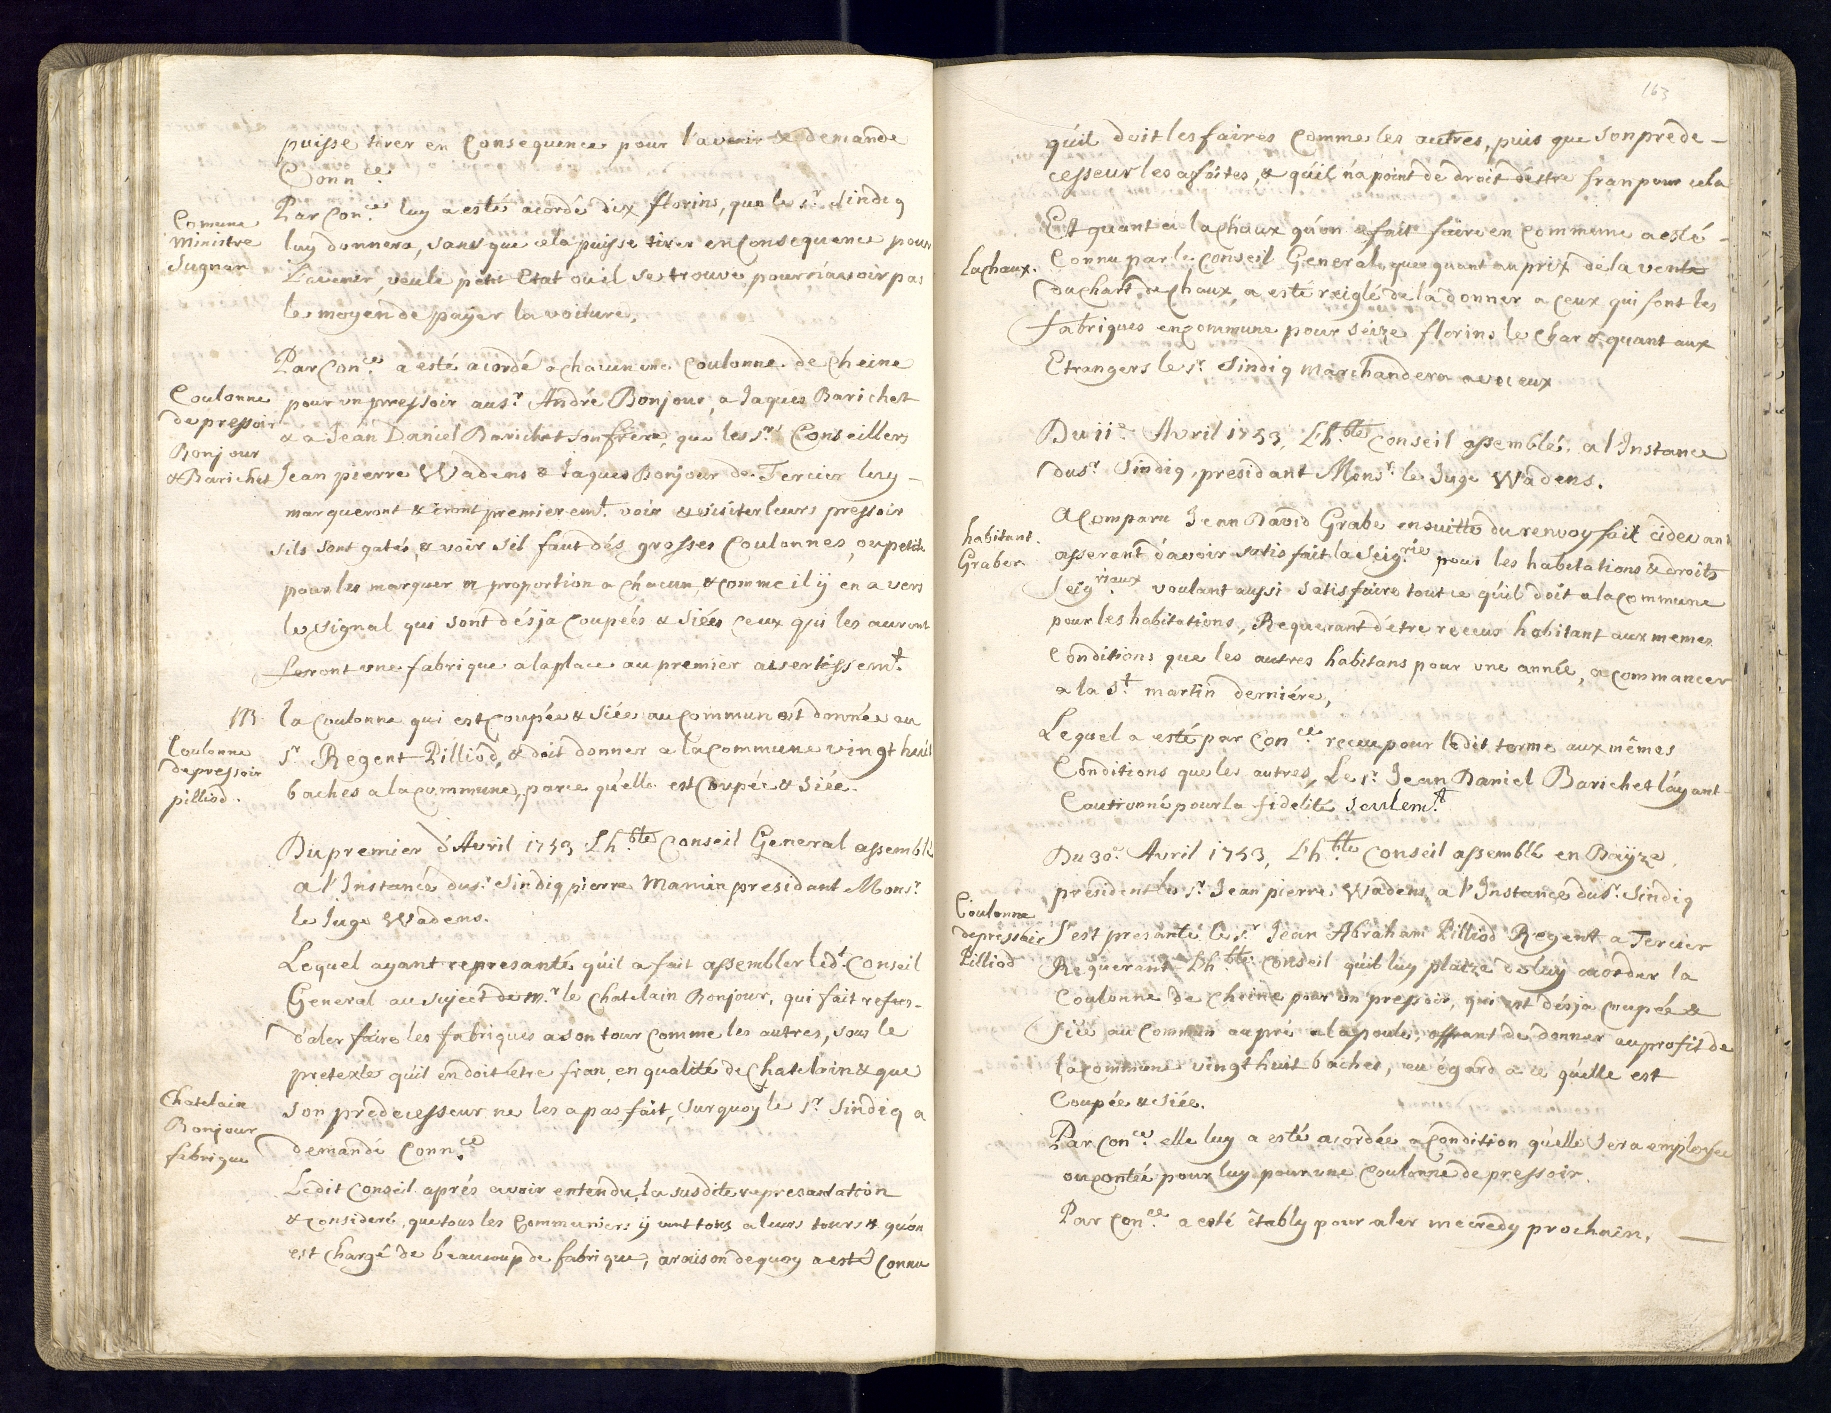 puisse tirer en Consequence pour l'avenir & demande
Connce.
Comune
Ministre
Sugnen
Par Conce. luy a esté acordé dix florins, que le sr. Sindiq
luy donnera, sans que cela puisse tirer en Consequence pour
L'avenir, veu le petit Etat ou il se trouve pour n'avoir pas
le moyen de payer la voiture,
Coulonne
de pressoir
Bonjour
& Barichet
Par Conce. a esté acordé a chacun une Coulonne de Cheine
pour un pressoir au sr. André Bonjour, a Jaques Barichet
& a Jean Daniel Barichet son frere, que les srs. Conseillers
Jean pierre Wadens & Jaques Bonjour de Tercier luy
marqueront & iront premieremt. voir & visiter leurs pressoir
s'ils sont gatés, & voir s'il faut dés grosses Coulonnes, ou petite
pour les marquer a proportion a chacun, & comme il ÿ en a vers
le signal qui sont désja coupées & siées ceux qui les auront
feront une fabrique a la place au premier avertissemt.
Coulonne
de pressoir
pilliod.
la Coulonne qui est coupée & siée au Commun est donnée au
sr. Regent Pilliod, & doit donner a la Commune vingt huit
baches a la commune, parce qu'elle est Coupée & siée.
Du premier d'Avril 1753 Lhble Conseil General assemblé
a l'Instance du sr. Sindiq pierre Mamin presidant Monsr.
le Juge Wadens.
Lequel ayant represanté qu'il a fait assembler ledt. Conseil
General au suject de Mr. le Chatelain Bonjour, qui fait refus
d'aler faire les fabriques a son tour comme les autres, sous le
pretexte qu'il en doit être fran, en qualité de Chatelain & que
Chatelain
Bonjour
fabrique
son predecesseur ne les a pas fait, surquoy le sr. Sindiq a
demandé Connce.
Ledit Conseil aprés avoir entendu la susdite represantation
& consideré, que tous les Communiers ÿ vont tous a leurs tours & qu'on
est chargé de beaucoup de fabrique, a raison de quoy a esté Connu
163
qu'il doit les faires comme les autres, puis que son prede-
cesseur les a faites, & qu'il n'a point de droit d'estre fran pour cela
La chaux.
Et quant a la chaux qu'on a fait faire en commune a esté
Connu par le Conseil General, que quant au prix de la vente
du chart de chaux, a esté reiglé de la donner a ceux qui font les
fabriques en commune pour séize florins le char & quant aux
Etrangers le sr. Sindiq marchandera avec eux
Du 11e. Avril 1753, Lhble Conseil assemblé, a l'Instance
du sr. Sindiq, presidant Monsr. le Juge Wadens.
habitant.
Graber
A Comparu Jean David Grabe ensuitte du renvoy fait cidevant
asserant d'avoir satisfait la Seigrie. pour les habitations & droits
Seigriaux voulant aussi satisfaire tout ce qu'il doit a la commune
pour les habitations, Requerant d'etre receus habitant aux memes
Conditions que les autres habitans pour une année, a commancer
a la St. martin derniére,
Lequel a esté par Conce. receu pour ledit terme aux mêmes
Conditions que les autres, Le sr. Jean Daniel Barichet l'ayant
Cautionné pour la fidelité seulemt.
Du 30e. Avril 1753, Lhble Conseil assemblé en Baÿze
president le sr. Jean pierre Wadens a l'Instance du sr. Sindiq
Coulonne
de pressoir
Pilliod
S'est presanté le sr Jean Abraham Pilliod Regent a Tercier
Requerant Lhble Conseil qu'il luy plaize de luy acorder la
Coulonne de Cheine pour un pressoir, qui est désja coupée &
siée au Commun au pré a la poule, offrant de donner au profit de
la commune vingt huit baches, eu égard a ce qu'elle est
Coupée & siée.
Par Conce. elle luy a esté acordée a condition qu'elle sera employée
ou contée pour luy pour une Coulonne de pressoir.
Par Conce. a esté étably pour aler mecredy prochain,